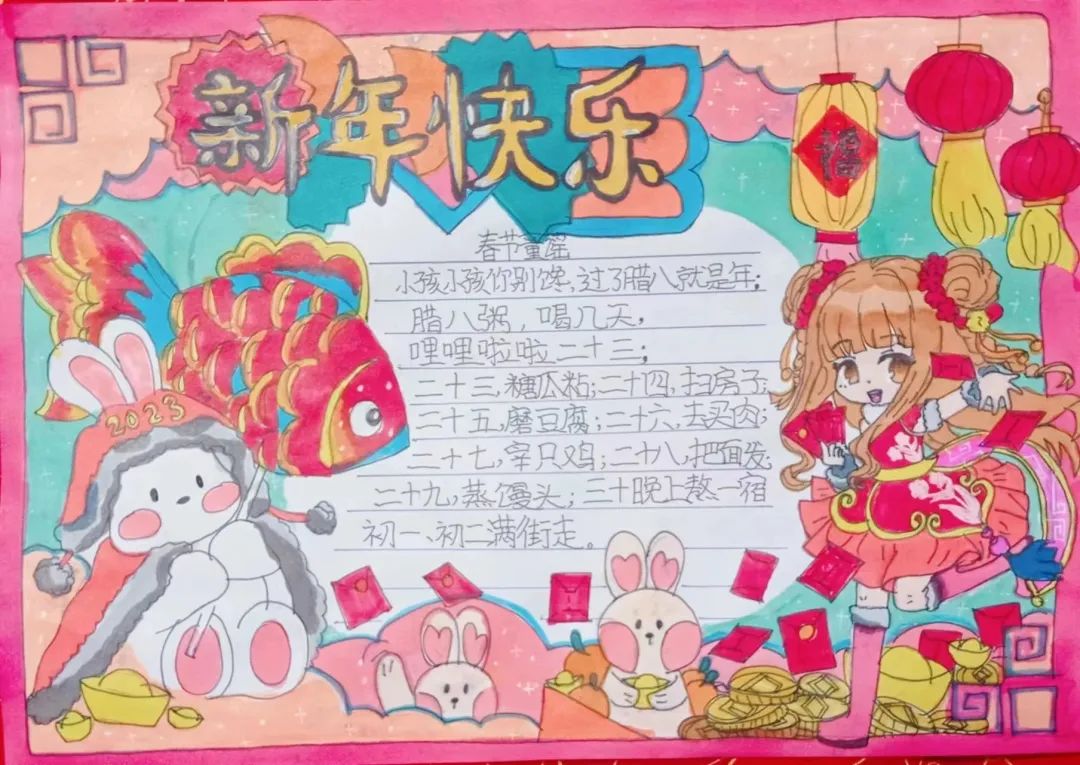 新年快乐
福
春节童谣
小孩小孩你别馋，过了腊八就是年；
腊八粥，喝几天，
哩哩啦啦二十三；
二十三，糖瓜粘；二十四，扫房子；
二十五，磨豆腐；二十六，去买肉；
二十七，宰只鸡；二十八，把面发；
二十九，蒸馒头；三十晚上熬一宿
初一、初二满街走。
2023